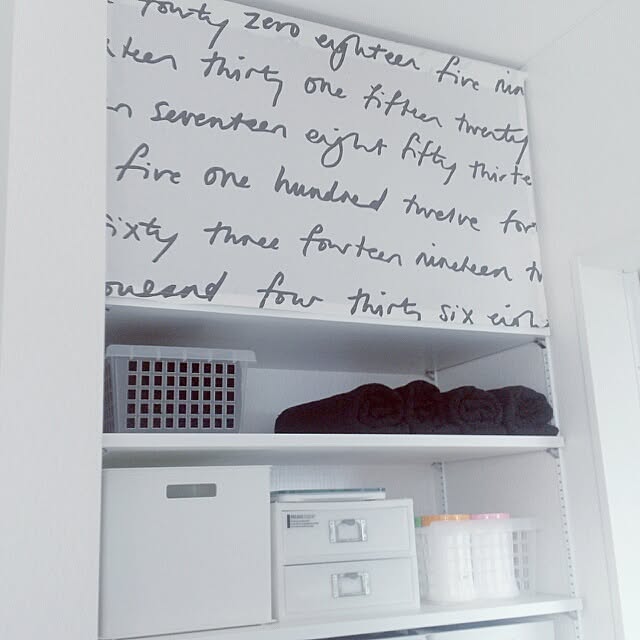 fourty zero eighteen five nin
teen thirty one fifteen twenty
n seventeen eight fifty thirte
five one hundred twelve for
sixty three fourteen nineteen tw
ousand four thirty six eigh